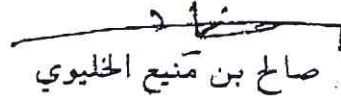 صالح بن مَنيع الخليوي